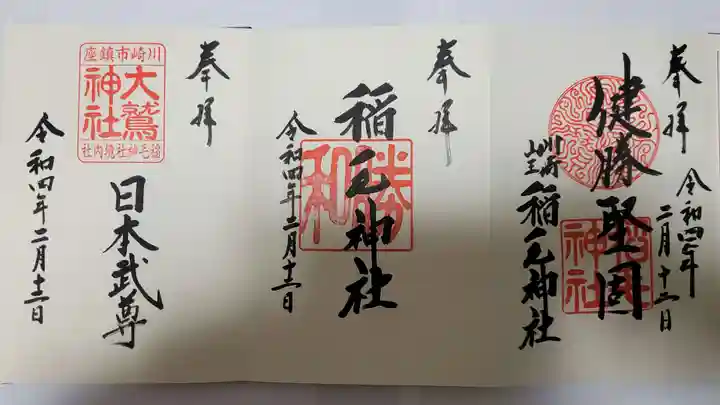 奉拝
健勝堅固
川崎
山王
稲毛神社
稲毛
神社
令和四年
二月十二日
奉拝
稲毛神社
勝
和
令和四年二月十二日
奉拝
川崎市鎮座
大鷲
神社
稲毛神社境内社
日本武尊
令和四年二月十二日